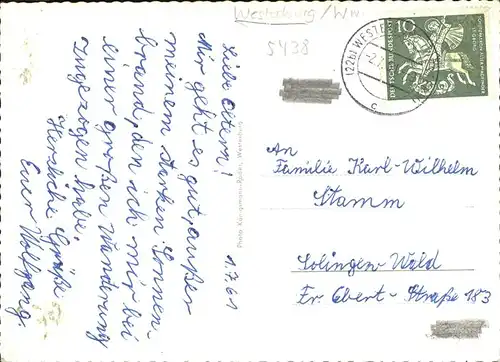 Westerburg/Ww.
5438
10
DEUTSCHE BUNDESPOST
(22b) WESTE
1.7.61
Liebe Eltern!
Mir geht es gut, außer
meinem starken Sonnen-
brand, den ich mir bei
einer großen Wanderung
zugezogen habe.
Herzliche Grüße
Euer Wolfgang.
An
Familie Karl-Wilhelm
Stamm
Solingen Wald
Fr. Ebert-Straße 183